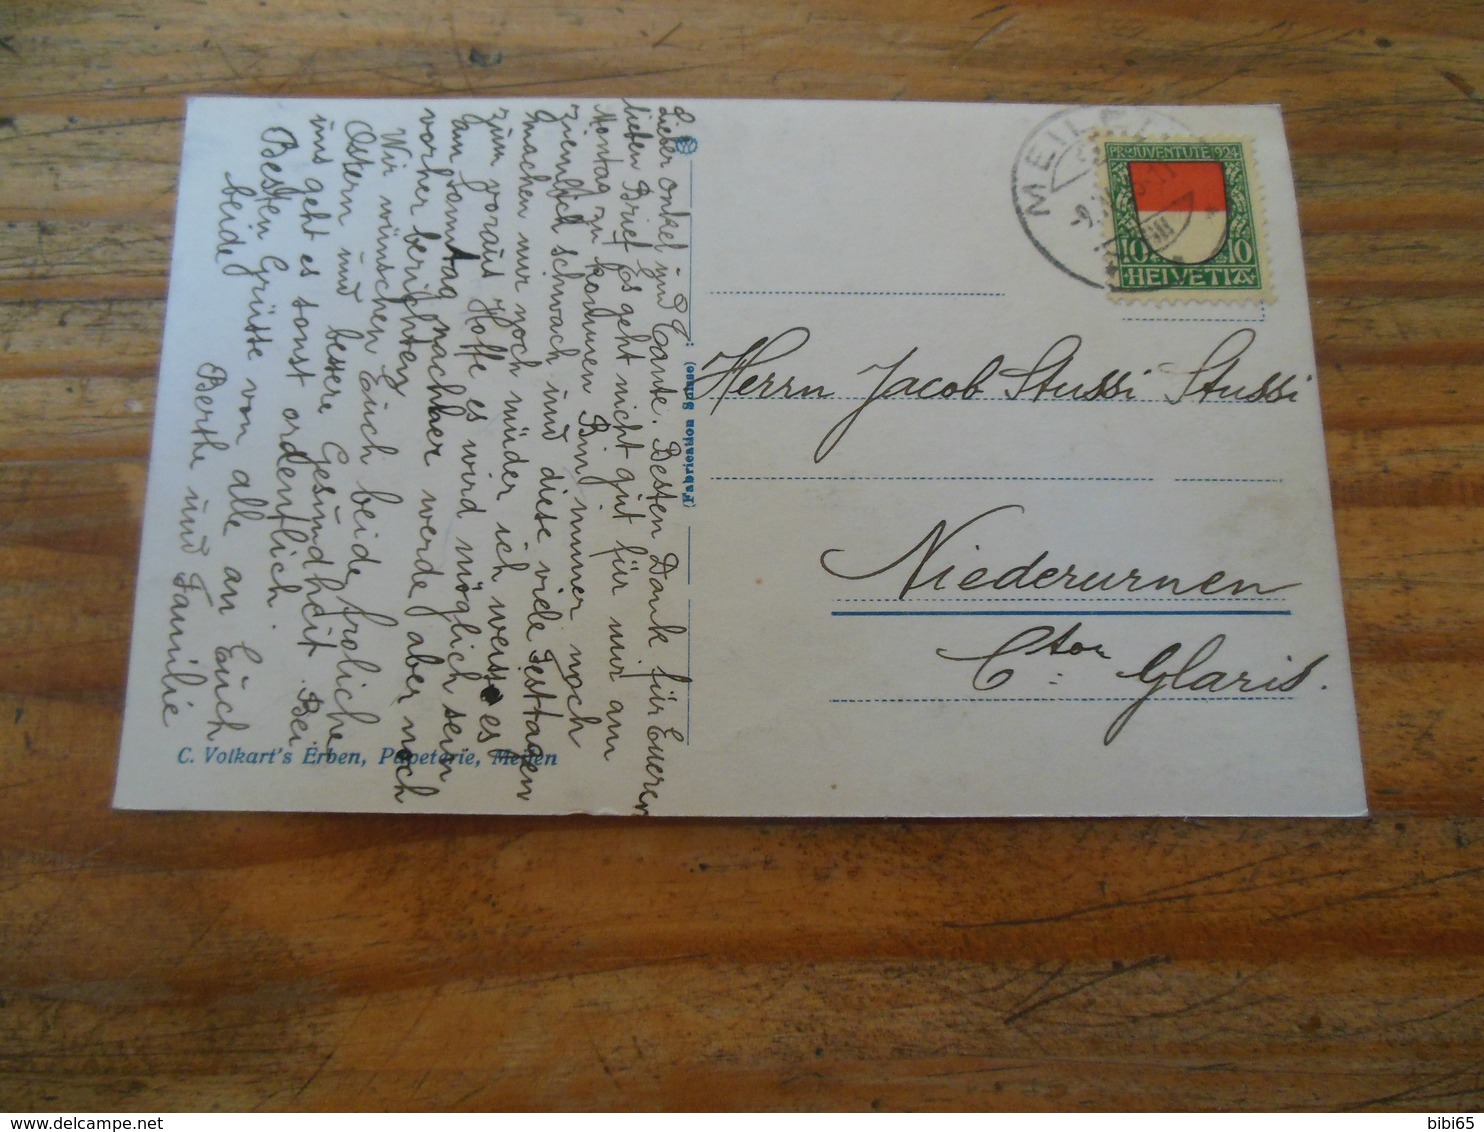 Lieber Onkel und Tante. Besten Dank für Eueren
lieben Brief Es geht nicht gut für mir am
Montag zu kommen Bin immer noch
ziemlich schwach und diese viele Festtagen
machen mir noch müder ich weiss es
zum voraus Hoffe es wird möglich sein
am Sonntag nachher werde aber noch
vorher berichten
Wir wünschen Euch beide froliche
Ostern und bessere Gesundheit. Bei
uns geht es sonst ordentlich.
Besten Grüsse von alle an Euch
beide
Berthe und Familie
C. Volkart's Erben, Papeterie, Meilen
(Fabrication Suisse)
MEILEN
PRO JUVENTUTE 1924
10 10
HELVETIA
Herrn Jacob Stussi Stussi
Niederurnen
Cton: Glaris.
bibi65